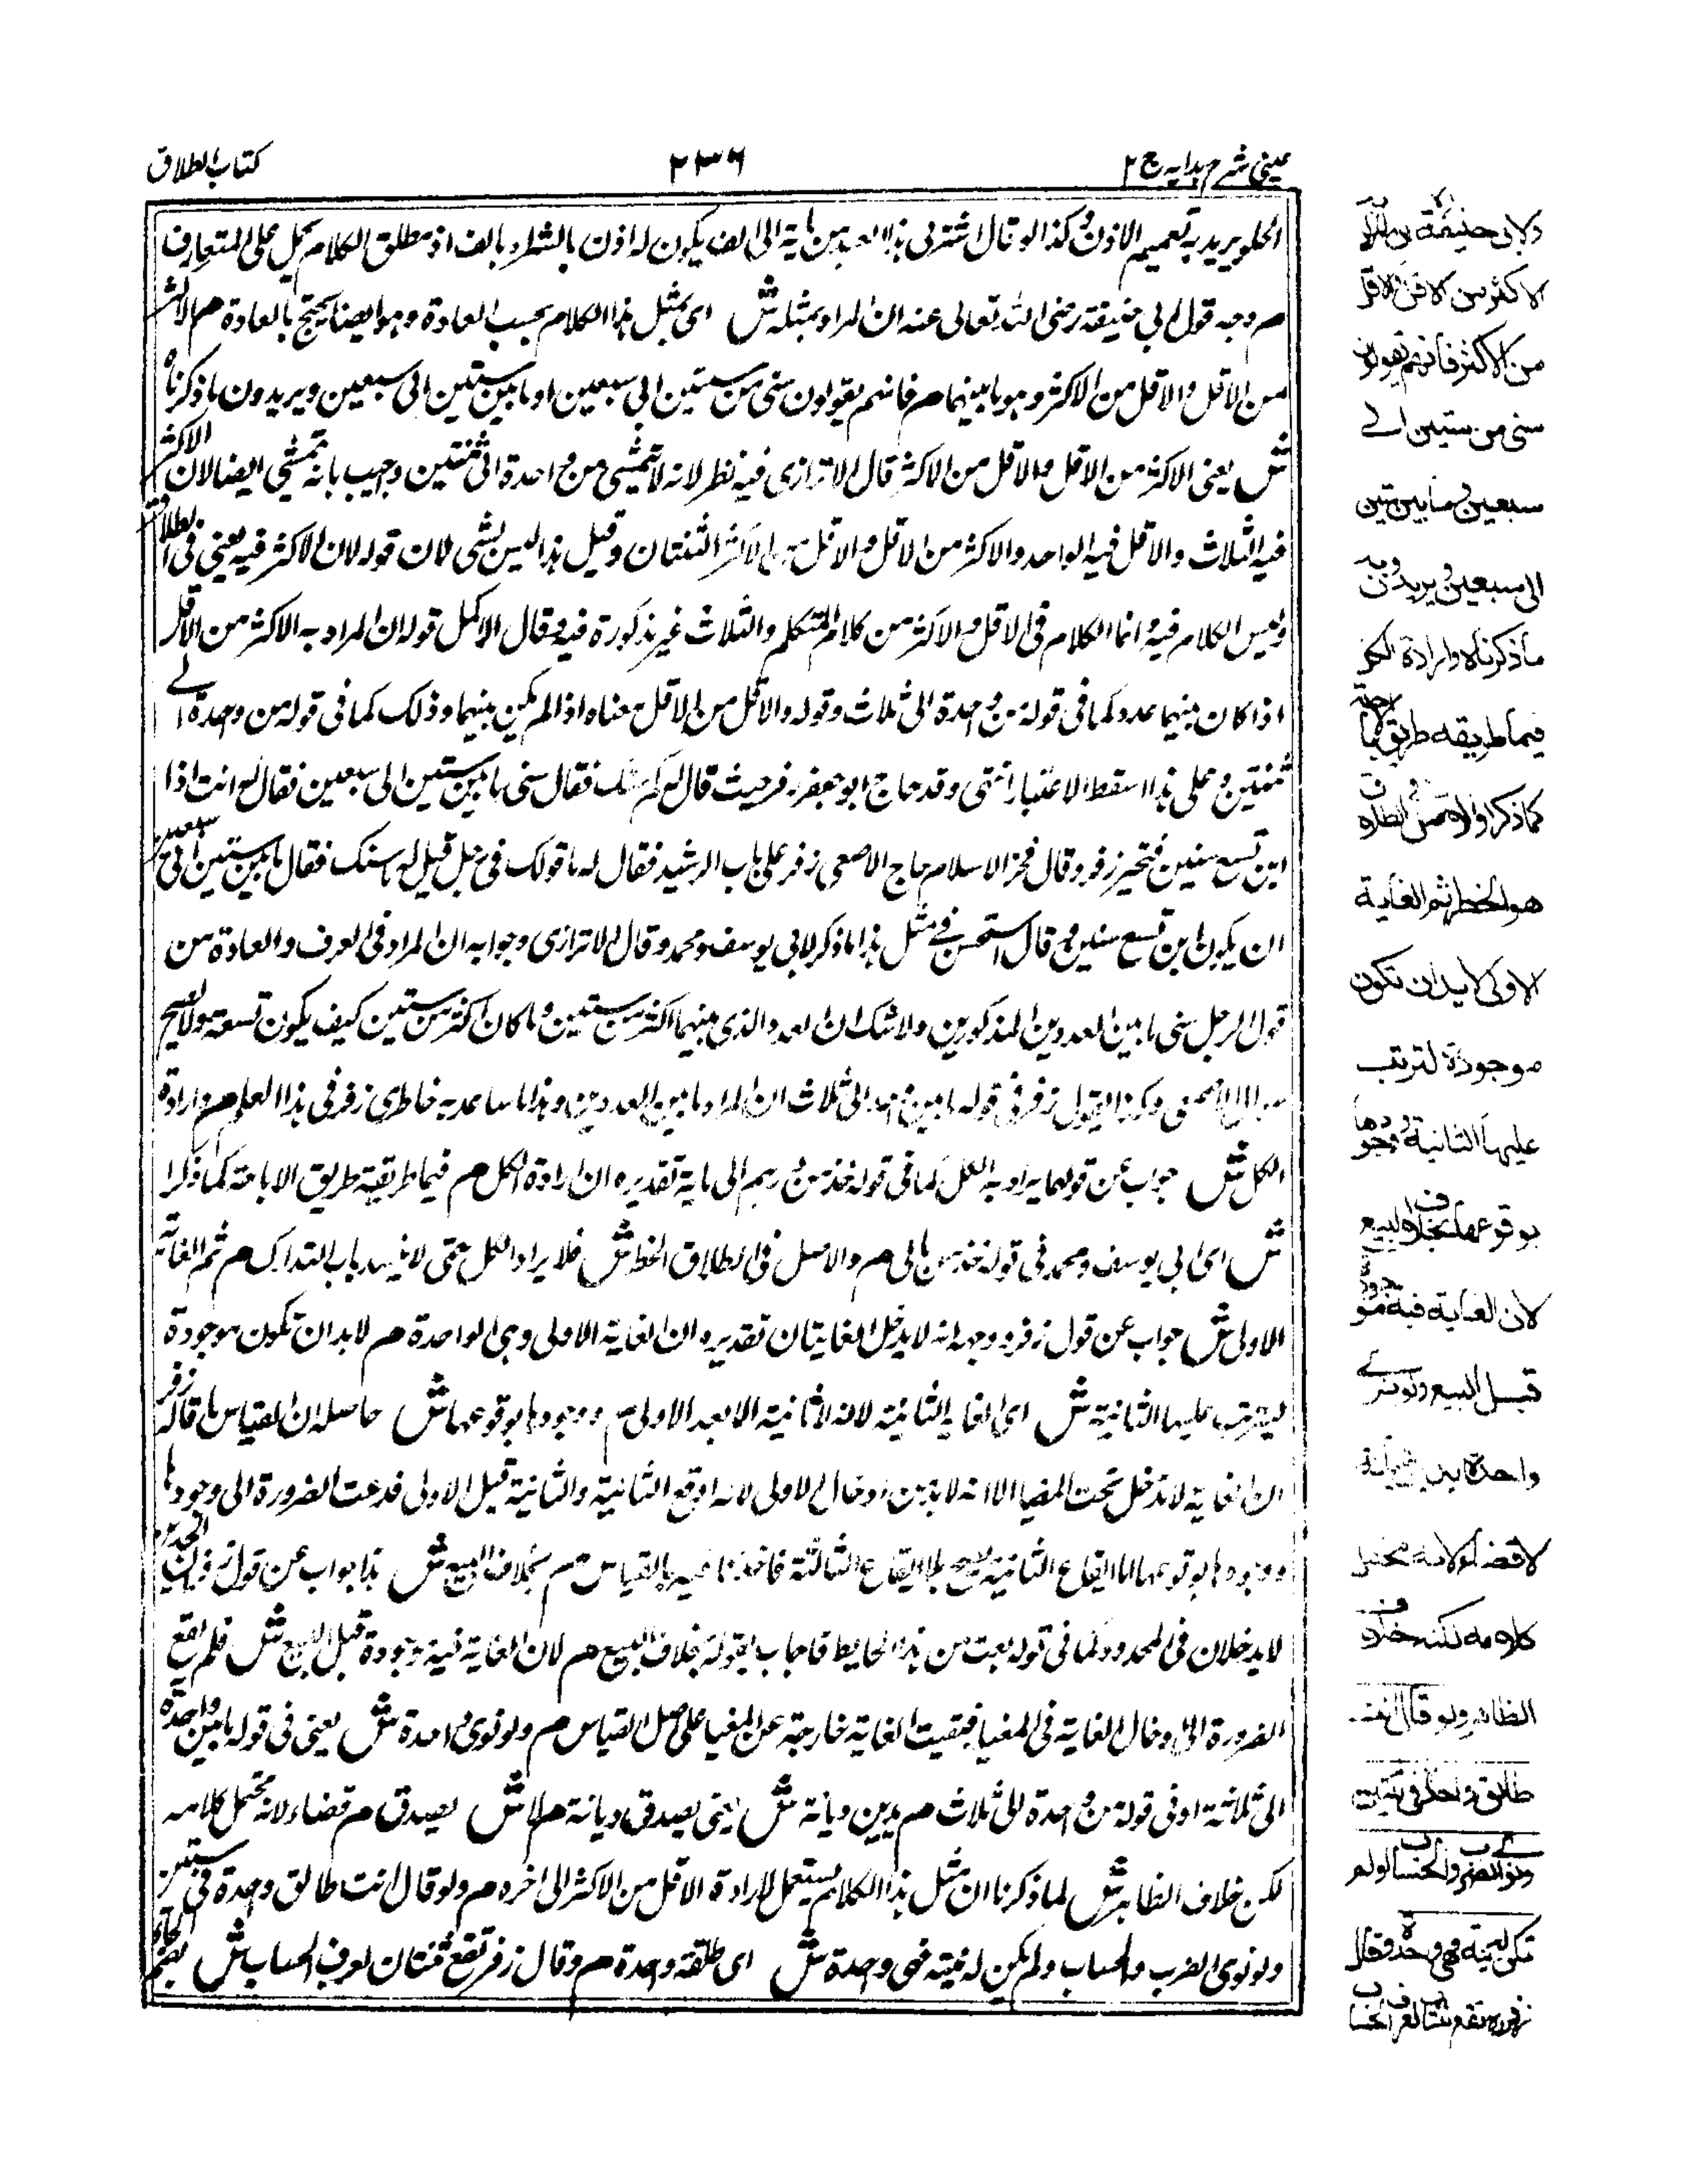 عینی شرح ہدایہ ج ۲
۲۳۶
کتاب الطلاق
الحلو یرید به تعمیم الاذن وکذا لو قال اشتر لی ہذا العبد من مایة الی الف یکون له اذن بالشراء بالف اذ مطلق الکلام یحمل علی المتعارف
م وجه قول ابی حنیفة رضی الله تعالی عنه ان المراد بمثله ش ای بمثل ہذا الکلام بحسب العادة وہو ایضا یحتج بالعادة م الاکثر
من الاقل والاقل من الاکثر وہو ما بینہما م فانہم یقولون سنی من ستین الی سبعین او ما بین ستین الی سبعین ویریدون ما ذکرناه
ش یعنی الاکثر من الاقل والاقل من الاکثر قال الاترازی فیه نظر لانه لا یتمشی من واحدة الی ثنتین واجیب بانه یتمشی ایضا لان الاکثر
فیه الثلاث والاقل فیه الواحد والاکثر من الاقل والاقل من الاکثر الثنتان وقیل ہذا لیس بشی لان قوله لان الاکثر فیه یعنی فی الطلاق
ولیس الکلام فیه وانما الکلام فی الاقل والاکثر من کلام المتکلم والثلاث غیر مذکورة فیه وقال الاکمل قوله ان المراد به الاکثر من الاقل
اذا کان بینہما عدد کما فی قوله من واحدة الی ثلاث وقوله والاقل من الاقل معناه اذا لم یکن بینہما وذلک کما فی قوله من واحدة الی
ثنتین وعلی ہذا سقط الاعتبار انتہی وقد حاج ابو جعفر زفر حیث قال له کم سنک فقال سنی ما بین ستین الی سبعین فقال له انت اذا
ابن تسع سنین فتحیر زفر وقال فخر الاسلام حاج الاصمعی زفر علی باب الرشید فقال له ما قولک فی رجل قیل له ما سنک فقال ما بین ستین الی سبعین
ان یکون ابن تسع سنین وقال استحسن فی مثل ہذا ما ذکر لابی یوسف ومحمد وقال الاترازی وجوابه ان المراد فی العرف والعادة من
قول الرجل سنی ما بین العددین المذکورین ولا شک ان العدد الذی بینہما اکثر من ستین وما کان اکثر من ستین کیف یکون تسعة ولا یصح
الاصمعی وکذا یقول زفر فی قوله ما بین واحد الی ثلاث ان المراد ما بین العددین وہذا ما ساعد به خاطری زفر فی ہذا العلم م وارادة
الکل ش جواب عن قولہما یراد به الکل کما فی قوله خذ من درہم الی مایة تقدیره ان ارادة الکل م فیما طریقه طریق الاباحة کما ذکرا
ش ای ابی یوسف ومحمد فی قوله خذ من مالی م والاصل فی الطلاق الحظر ش فلا یراد الکل حتی لا ینسد باب التدارک م ثم الغایة
الاولی ش جواب عن قول زفر ووجہه انه لا یدخل الغایتان تقدیره ان الغایة الاولی وہی الواحدة م لا بد ان تکون موجودة
لیترتب علیہا الثانیة ش ای الغایة الثانیة لانه لا ثانیة الا بعد الاولی م ووجودہا بوقوعہا ش حاصله ان القیاس ما قاله زفر
ان الغایة لا تدخل تحت المغیا الا انه لا بد من ادخال الاولی لانه اوقع الثانیة والثانیة قبل الاولی فدعت الضرورة الی وجودہا
ووجودہا بوقوعہا اما ایقاع الثانیة یصح بلا ایقاع الثالثة فاخذنا فیه بالقیاس م بخلاف البیع ش ہذا جواب عن قول زفر ان الحدین
لا یدخلان فی المحدود کما فی قوله بعت من ہذا الحایط فاجاب بقوله بخلاف البیع م لان الغایة فیه موجودة قبل البیع ش فلم تقع
الضرورة الی ادخال الغایة فی المغیا فبقیت الغایة خارجة عن المغیا علی اصل القیاس م ولو نوی واحدة ش یعنی فی قوله ما بین واحدة
الی ثلاثة او فی قوله من واحدة الی ثلاث م یدین دیانة ش یعنی یصدق دیانة م لا ش یصدق م قضاء لانه محتمل کلامه
لکن خلاف الظاہر ش لما ذکرنا ان مثل ہذا الکلام یستعمل لارادة الاقل من الاکثر الی اخره م ولو قال انت طالق واحدة فی ثنتین
ولو نوی الضرب والحساب ولم یکن له نیة فہی واحدة ش ای طلقة واحدة م وقال زفر تقع ثنتان لعرف الحساب ش
ولابی حنیفة ان المراد
الاکثر من الاقل والاقل
من الاکثر فانہم یقولون
سنی من ستین الے
سبعین وما بین ستین
الی سبعین ویریدون به
ما ذکرناه وارادة الکل
فیما طریقه طریق الاباحة
کما ذکرا والاصل فی الطلاق
ہو الحظر ثم الغایة
الاولی لا بد ان تکون
موجودة لترتب
علیہا الثانیة ووجودہا
بوقوعہا بخلاف البیع
لان الغایة فیه موجودة
قبل البیع ولو نوے
واحدة یدین دیانة
لا قضاء لانه محتمل
کلامه لکنه خلاف
الظاہر ولو قال انت
طالق واحدة فی ثنتین
ونوی الضرب والحساب او لم
تکن له نیة فہی واحدة وقال
زفر تقع ثنتان لعرف الحساب